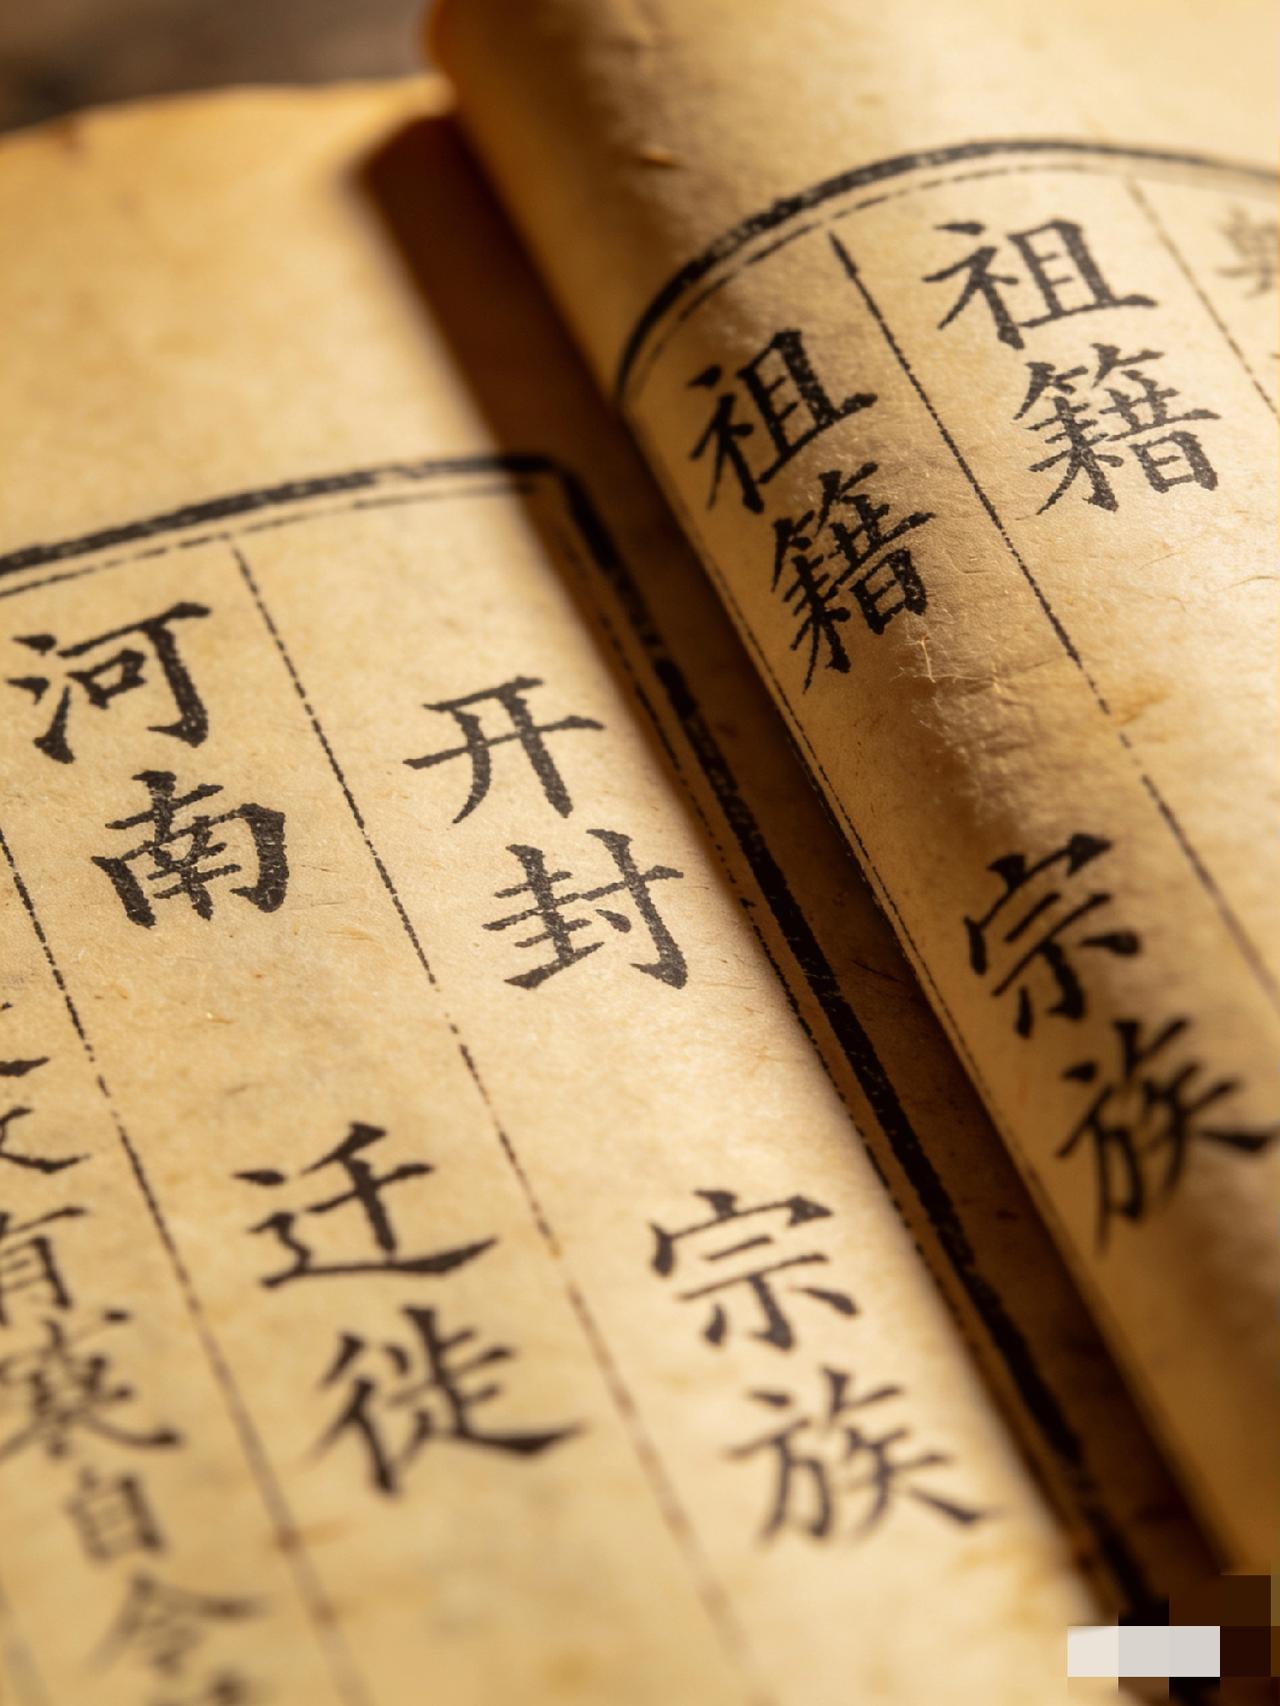 祖籍
祖籍 宗族
开封 宗族
河南 迁徙
有
自